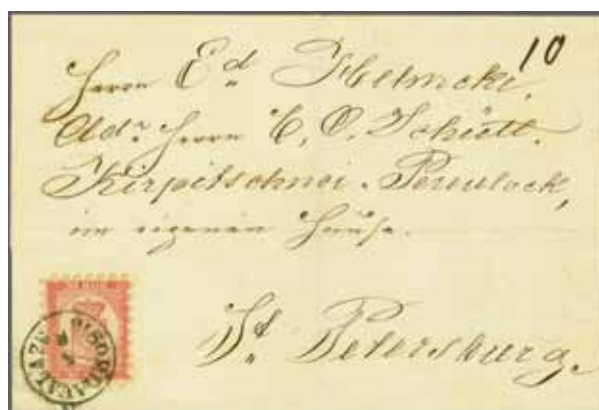 10
Herrn Ed. Helmcke,
Adr. Herrn C. O. Schütt.
Kirpitschnei-Pereulock,
im eigenen Hause.
St. Petersburg.